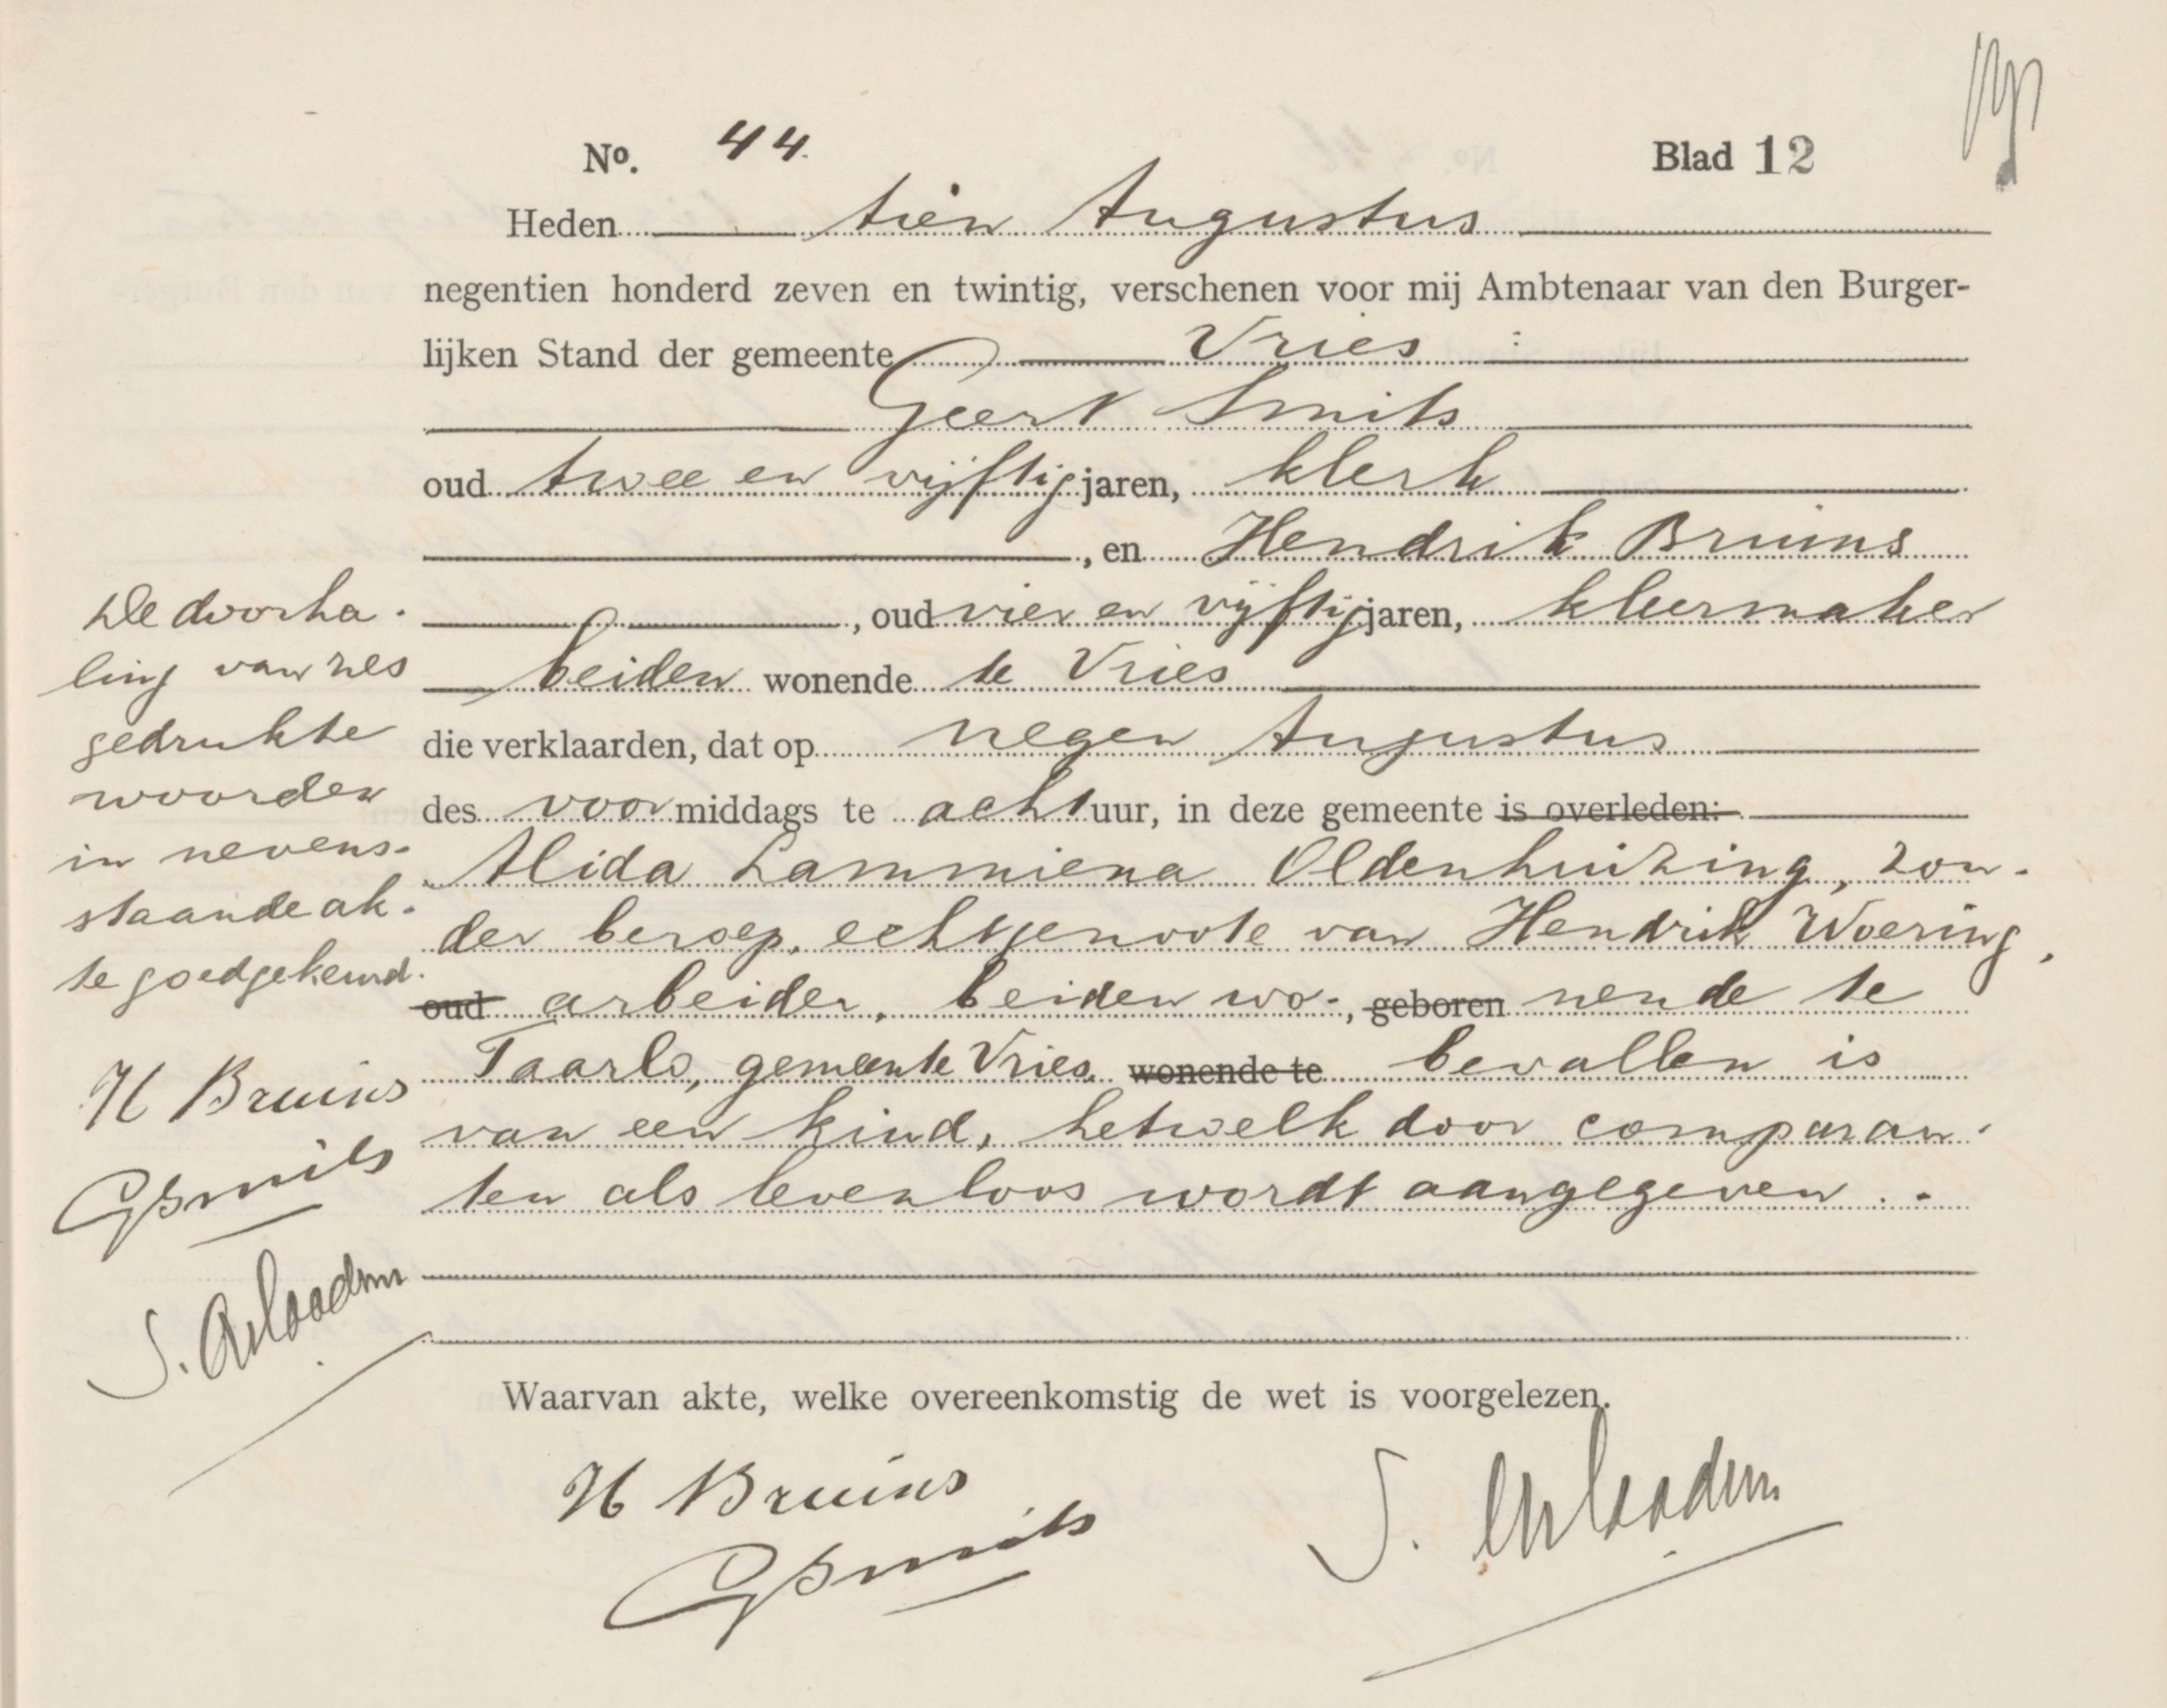 No. 44.
Blad 12
Heden tien Augustus
negentien honderd zeven en twintig, verschenen voor mij Ambtenaar van den Burger-
lijken Stand der gemeente Vries :
Geert Smits
oud twee en vijftig jaren, klerk
, en Hendrik Bruins
, oud vier en vijftig jaren, kleermaker
beiden wonende te Vries
die verklaarden, dat op negen Augustus
des voormiddags te acht uur, in deze gemeente is overleden:
Alida Lammiena Oldenhuizing, zon-
der beroep, echtgenoote van Hendrik Woering,
oud arbeider, beiden wo-, geboren nende te
Taarlo, gemeente Vries, wonende te bevallen is
van een kind, hetwelk door comparan-
ten als levenloos wordt aangegeven. -
Waarvan akte, welke overeenkomstig de wet is voorgelezen.
H Bruins
GSmits
De doorha-
ling van zes
gedrukte
woorden
in nevens-
staande ak-
te goedgekeurd.
H Bruins
GSmits